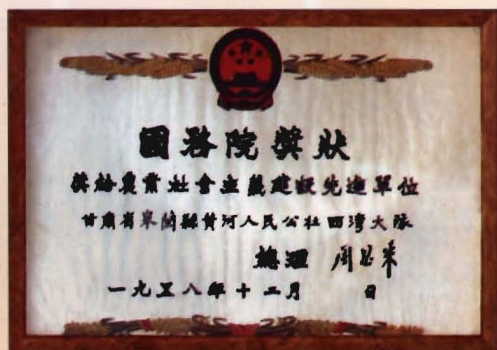 國務院獎狀
獎給農業社會主義建設先進單位
甘肅省皋蘭縣黃河人民公社西灣大隊
總理 周恩來
一九五八年十二月 日